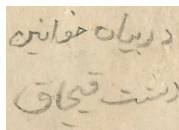 در بیان خوانین
دشت قبچاق